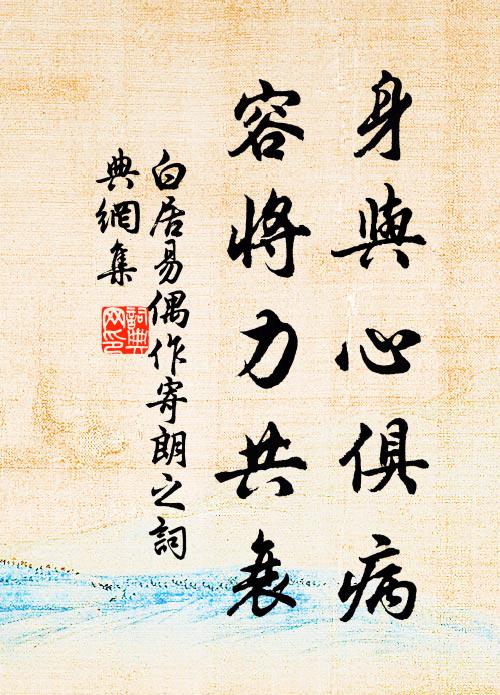 身與心俱病
容將力共衰
白居易偶作寄朗之詞
典網集
詞典
网印